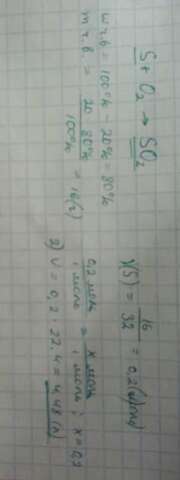 S + O₂ → SO₂
ω ч.в = 100% - 20% = 80%
m ч.в. = 20 · 80% / 100% = 16(г)
ν(S) = 16 / 32 = 0,2(моль)
0,2 моль / 1 моль = x моль / 1 моль ; x = 0,2
2) V = 0,2 · 22.4 = 4,48 (л)